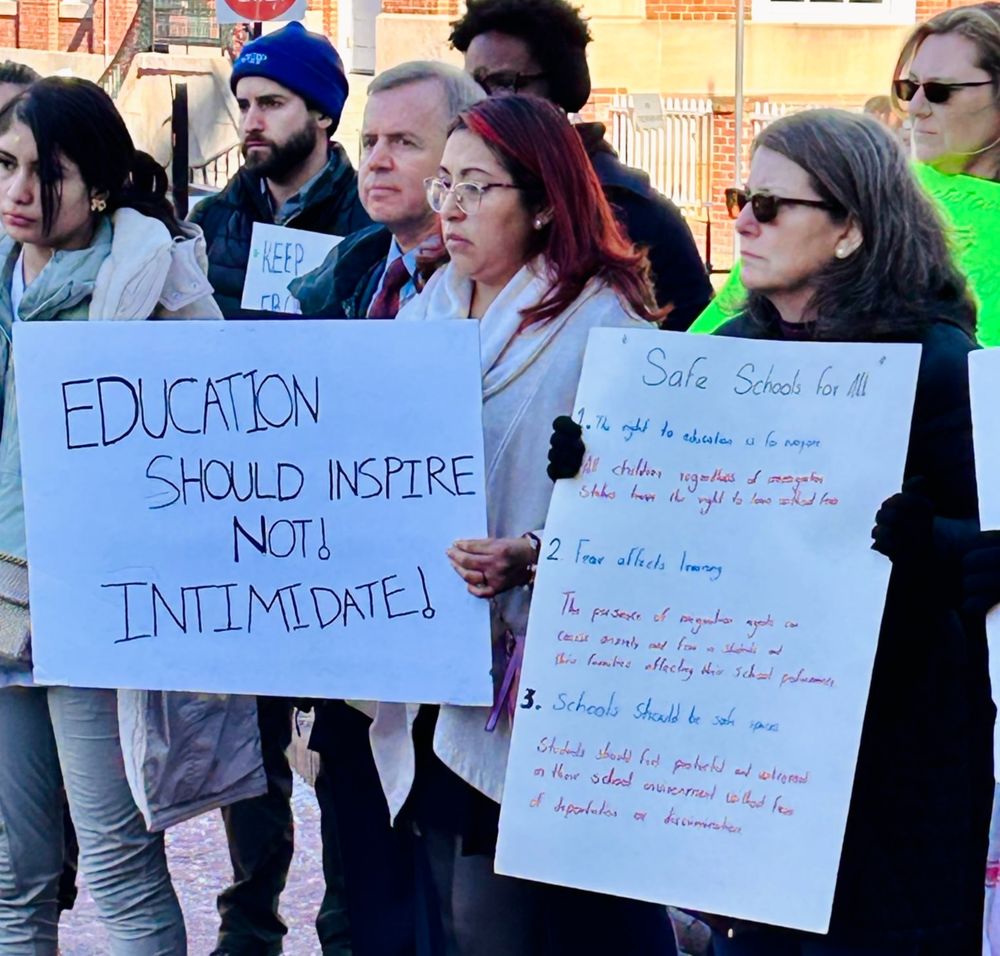 KEEP
EDUCATION
SHOULD INSPIRE
NOT!
INTIMIDATE!
Safe Schools for All
1. The right to education is for everyone
All children regardless of immigration
Status have the right to learn without fear
2. Fear affects learning
The presence of immigration agents can
cause anxiety and fear in students and
their families affecting their school performance
3. Schools should be safe spaces
Students should feel protected and welcomed
in their school environment without fear
of deportation or discrimination